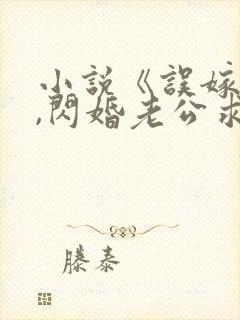 小説《誤嫁
,閃婚老公求
滕泰